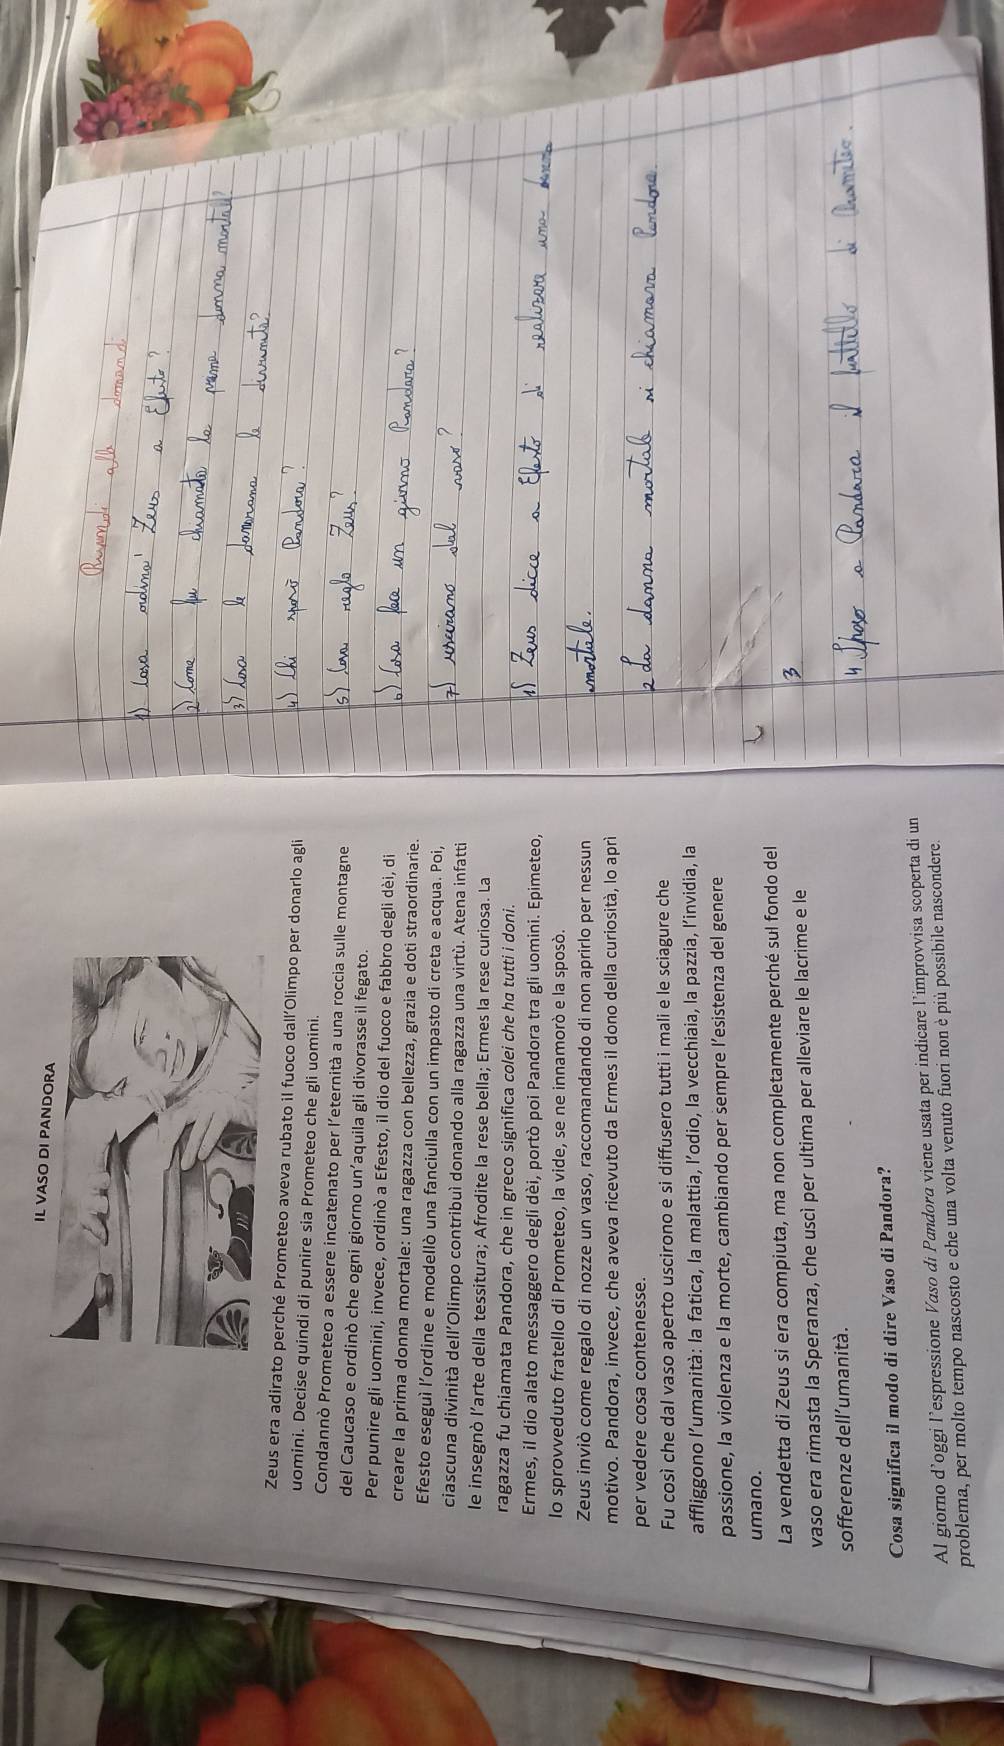 IL VASO DI PANDORA
Zeus era adirato perché Prometeo aveva rubato il fuoco dall'Olimpo per donarlo agli
uomini. Decise quindi di punire sia Prometeo che gli uomini.
Condannò Prometeo a essere incatenato per l'eternità a una roccia sulle montagne
del Caucaso e ordinò che ogni giorno un'aquila gli divorasse il fegato.
Per punire gli uomini, invece, ordinò a Efesto, il dio del fuoco e fabbro degli dèi, di
creare la prima donna mortale: una ragazza con bellezza, grazia e doti straordinarie.
Efesto eseguì l'ordine e modellò una fanciulla con un impasto di creta e acqua. Poi,
ciascuna divinità dell'Olimpo contribuì donando alla ragazza una virtù. Atena infatti
le insegnò l'arte della tessitura; Afrodite la rese bella; Ermes la rese curiosa. La
ragazza fu chiamata Pandora, che in greco significa colei che ha tutti i doni.
Ermes, il dio alato messaggero degli dèi, portò poi Pandora tra gli uomini. Epimeteo,
lo sprovveduto fratello di Prometeo, la vide, se ne innamorò e la sposò.
Zeus inviò come regalo di nozze un vaso, raccomandando di non aprirlo per nessun
motivo. Pandora, invece, che aveva ricevuto da Ermes il dono della curiosità, lo aprì
per vedere cosa contenesse.
Fu così che dal vaso aperto uscirono e si diffusero tutti i mali e le sciagure che
affliggono l'umanità: la fatica, la malattia, l'odio, la vecchiaia, la pazzia, l'invidia, la
passione, la violenza e la morte, cambiando per sempre l'esistenza del genere
umano.
La vendetta di Zeus si era compiuta, ma non completamente perché sul fondo del
vaso era rimasta la Speranza, che uscì per ultima per alleviare le lacrime e le
sofferenze dell'umanità.
Cosa significa il modo di dire Vaso di Pandora?
Al giorno d'oggi l'espressione Vaso di Pandora viene usata per indicare l'improvvisa scoperta di un
problema, per molto tempo nascosto e che una volta venuto fuori non è più possibile nascondere.
alle domand
1) Cosa ordino' Zeus a Efesto?
2) Come fu chiamata la prima donna mortale?
3) Cosa le donarano le
4) Chi sposò Pandora?
5) Cosa Zeus?
6) Cosa fece un giorno Pandora?
7) uscirano dal vaso?
1) Zeus dicce a Efesto di realizare una
mortale.
2 La danna mortale si chiamava Pandora.
3
4 Sposo a Pandara il di